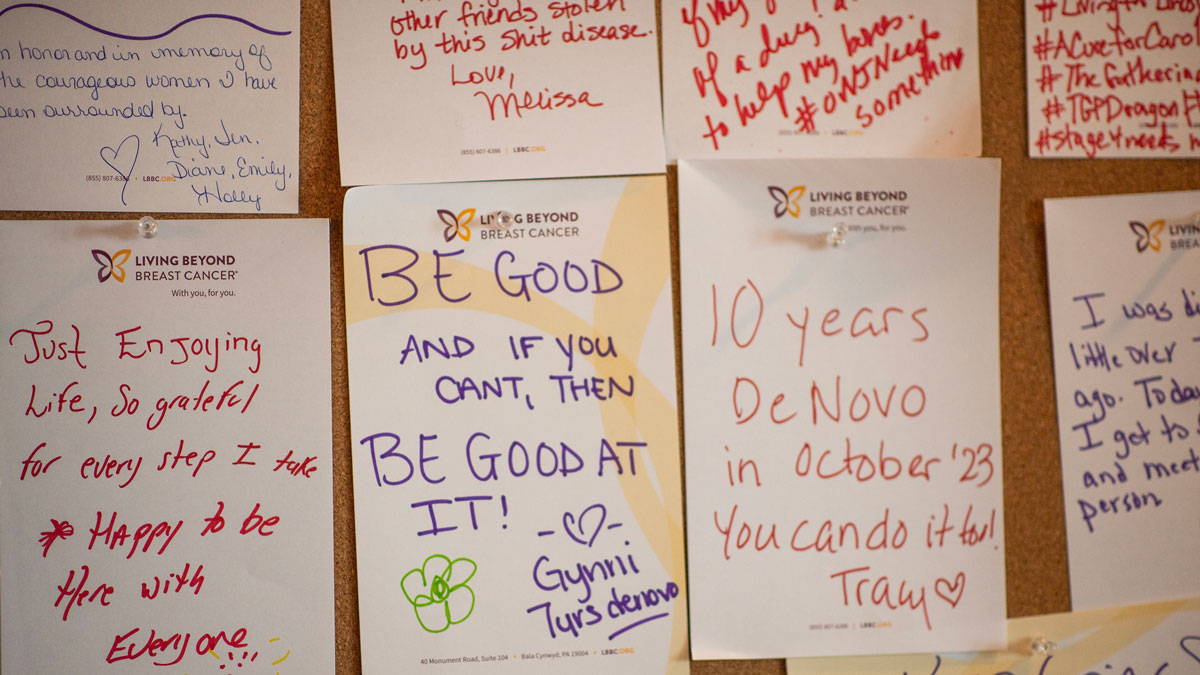 n honor and in memory of
the courageous women I have
been surrounded by.
Kathy, Jen,
Diane, Emily,
Holly
(855) 807-6386 • LBBC.ORG
other friends stolen
by this shit disease.
Love,
Melissa
(855) 807-6386 | LBBC.ORG
of my
of a drug
to help my loves.
#OWSNeed
something
#ACureForCarol
#TheGatherin
#TGPDragon
#stage4needs
LIVING BEYOND
BREAST CANCER
With you, for you.
Just Enjoying
Life, So grateful
for every step I take
* Happy to be
Here with
Everyone
LIVING BEYOND
BREAST CANCER
BE GOOD
AND IF YOU
CANT, THEN
BE GOOD AT
IT!
Gynni
7yrs denovo
40 Monument Road, Suite 104 • Bala Cynwyd, PA 19004 • LBBC.ORG
LIVING BEYOND
BREAST CANCER
With you, for you.
10 years
De Novo
in October '23
You can do it too!
Tracy
(855) 807-6386 | LBBC.ORG
LIVIN
BREAS
I was di
little over
ago. Today
I get to
and meet
person